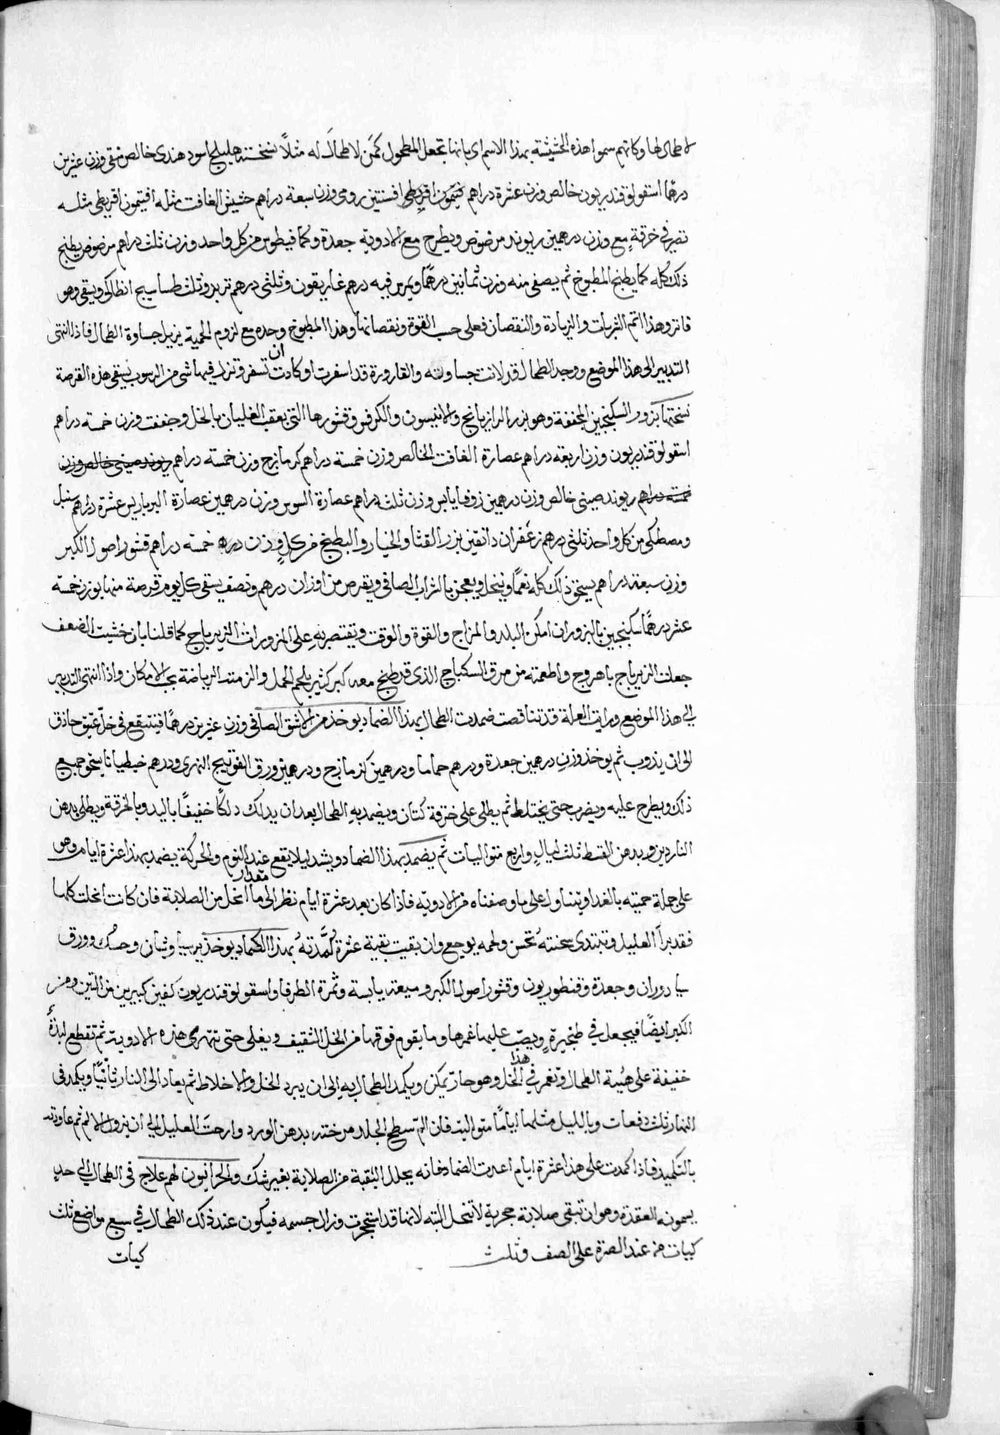 لاطحال لها وكانهم سموا هذه الحشيشة بهذا الاسم اى بانها تجعل المطحول كمن لاطحال له مثلاً نسخته هليلج اسود هندى خالص منقى وزن عشرين
درهما اسقولوقندريون خالص وزن عشرة دراهم اقريطى افسنتين رومى وزن سبعة دراهم حشيش الغافت مثله افتيمون اقريطى مثله
تصره فى خرقة مع وزن درهمين ريوند مرضوض ويطرح مع الادوية جعدة وكمافيطوس من كل واحد وزن ثلث دراهم مرضوض يطبخ
ذلك كله كما يطبخ المطبوخ ثم يصفى منه وزن ثمانين درهما ويمرس فيه درهم غاريقون وثلثى درهم تربد وثلث طساسيج انطاكى ويسقى وهو
فاتر وهذا اتم الشربات والزيادة والنقصان فعلى حسب القوة ونقصانها وهذا المطبوخ وحده مع لزوم الحمية يزيل جساوة الطحال فاذا انتهى
التدبير الى هذا الموضع ووجد الطحال قد لانت جساوته والقارورة قد اسفرت او كادت ان تسفر وتزل فيها شى من الرسوب يسقى هذه القرصة
نسختها بزور السكنجبين المجففة وهو بزر الرازيانج والانيسون والكرفس وقشورها التى بعقب الغليان بالخل وجففت وزن خمسة دراهم
اسقولوقندريون وزن اربعة دراهم عصارة الغافت الخالص وزن خمسة دراهم كزمازج وزن خمسة دراهم ريوند صينى خالص وزن
خمسة دراهم ريوند صينى خالص وزن درهمين زوفا يابس وزن ثلثة دراهم عصارة السوس وزن درهمين عصارة البرباريس عشرة دراهم سنبل
ومصطكى من كل واحد ثلثى درهم زعفران دانقين بزر القثا والخيار والبطيخ من كل وزن خمسة دراهم قشور اصول الكبر
وزن سبعة دراهم يسحق ذلك كله نعما وينخل ويعجن بالشراب الصافى ويقرص من اوزان درهم ونصف يسقى كل يوم قرصة منها بوزن خمسة
عشر درهما سكنجبين بالبزور ان امكن البلد والمزاج والقوة والوقت ويقتصر به على المزورات الزيرباج كما قلنا بان خشيت الضعف
جعلت الزيرباج بالفروج واطعمته من مرق السكباج الذى قد طبخ معه كبر كثير بلحم الحمل والزمته الرياضة بحسب الامكان واذا انتهى التدبير
الى هذا الموضع ورايت العلة قد تناقصت ضمدت الطحال بهذا الضماد يوخذ من الاشق الصافى وزن عشرين درهما فينتقع فى خل عتيق حاذق
الى ان يذوب ثم يوخذ وزن درهمين جعدة ودرهم حماما ودرهمين كزمازج ودرهمين ورق الفوتنج النهرى ودرهم خيطيانا يسحق جميع
ذلك ويطرح عليه ويضرب حتى يختلط ثم يطلى على خرقة كتان ويضمد به الطحال بعد ان يدلك دلكاً خفيفاً باليد وبالخرقة ويطلى بدهن
الناردين وبدهن القسط ثلث ليالٍ واربع متواليات ثم يضمد بهذا الضماد ويشد ليلا يقع عند النوم والحركة يضمد بهذا عشرة ايام وهو
على جملة حميته بالغدا ويتناول على ما وصفناه من الادوية فاذا كان بعد عشرة ايام نظر الى مقدار ما انحل من الصلابة فان كانت انحلت كلها
فقد برا العليل وتبتدى سحنته تحسن ولحمه يرجع وان بقيت بقية عشرة كمدته بهذا الكماد يوخذ برسيا وشان وحسك وورق
باداوران وجعدة وقنطوريون وقشور اصول الكبر وسيعة يابسة وثمرة الطرفا واسقولوقندريون كفين كبيرين من التين ومن
الكبر ايضا فيجعل فى طنجرة ويصب عليها غمرها وما يقوم فوقها من الخل الثقيف ويغلى حتى تتهرى هذه الادوية ثم تقطع لبدة
خفيفة على هيئة الطحال وتغمر فى هذا الخل وهو حار يمكن ويكمد الطحال به الى ان يبرد الخل والاخلاط ثم يعاد الى النار ثانيا ويكمد فى
النهار ثلث دفعات وبالليل مثلها اياماً متوالية فان الم سطح الجلد مرخته بدهن الورد وارحت العليل الى ان يزول الالم ثم عاودته
بالتكميد فاذا كمدت على هذا عشرة ايام اعدت الضماد فانه يحلل البقية من الصلابة بغير شك والحرانيون لهم علاج فى الطحال الى حد
يسمونه العقدة وهو ان تبقى صلابة حجرية لا تنحل البتة لانها قد استحجرت وزال جسمه فيكون عند ذلك الطحال فى سبع مواضع ثلث
كيات منه عند الصرة على الصف وثلث
كيات